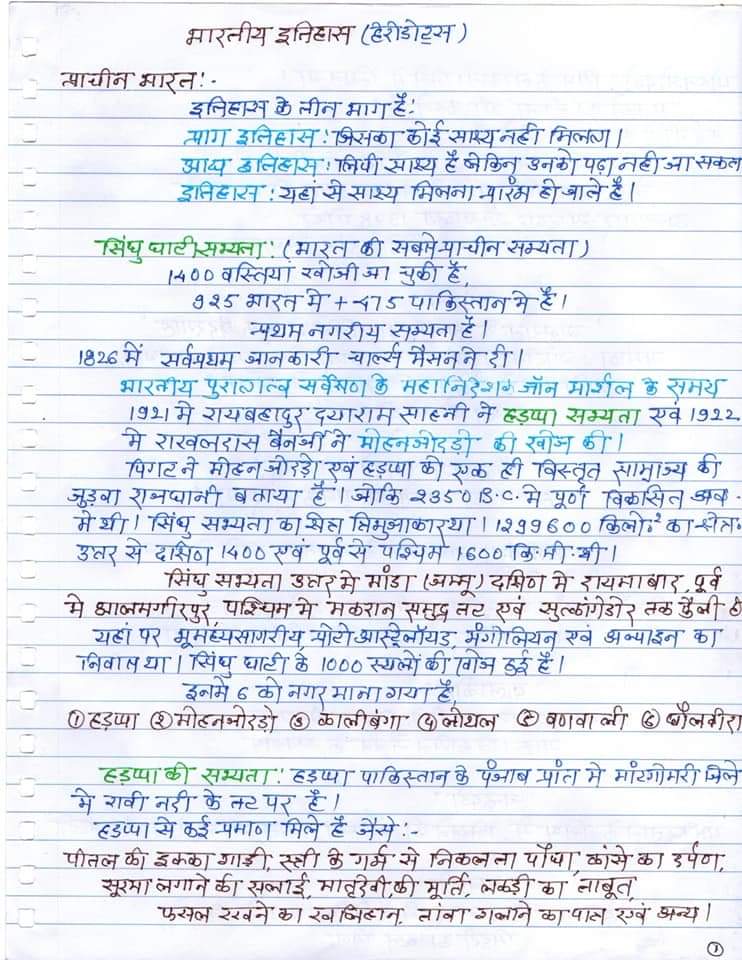 भारतीय इतिहास (हेरीडोट्स)
प्राचीन भारत :-
इतिहास के तीन भाग है:
प्राग इतिहास : जिसका कोई साक्ष्य नही मिलता।
आद्य इतिहास : लिपी साक्ष्य है लेकिन उनको पढ़ा नही जा सकता
इतिहास : यहां से साक्ष्य मिलना प्रारंभ हो जाते है।
सिंधु घाटी सभ्यता : (भारत की सबसे प्राचीन सभ्यता)
1400 वस्तिया खोजी जा चुकी है,
925 भारत मे + 475 पाकिस्तान मे है।
प्रथम नगरीय सभ्यता है।
1826 में सर्वप्रथम जानकारी चार्ल्स मैसन ने दी।
भारतीय पुरातात्व सर्वेक्षण के महानिदेशक जॉन मार्शल के समय
1921 मे रायबहादुर दयाराम साहनी ने हड़प्पा सभ्यता एवं 1922
मे राखलदास बैनर्जी ने मोहनजोदड़ो की खोज की।
पिगट ने मोहनजोदड़ो एवं हड़प्पा को एक ही विस्तृत साम्राज्य की
जुड़वा राजधानी बताया है। जोकि 2350 B.C. मे पूर्ण विकसित अव-
मे थी। सिंधु सभ्यता का क्षेत्र त्रिभुजाकार था। 1299600 किलो.² का क्षेत्र-
उत्तर से दक्षिण 1400 एवं पूर्व से पश्चिम 1600 कि.मी. थी।
सिंधु सभ्यता उत्तर मे मांडा (जम्मू) दक्षिण मे दायमाबार, पूर्व
मे आलमगीरपुर, पश्चिम मे मकरान समुद्र तट एवं सुत्कांगेडोर तक फैली है
यहां पर भूमध्यसागरीय, प्रोटोआस्ट्रेलॉयड, मंगोलियन एवं अल्पाइन का
निवास था। सिंधु घाटी के 1000 स्थलों की खोज हुई है।
इनमे 6 को नगर माना गया है,
① हड़प्पा ② मोहनजोदड़ो ③ कालीबंगा ④ लोथल ⑤ बणवाली ⑥ धौलवीरा
हड़प्पा की सभ्यता : हड़प्पा पाकिस्तान के पंजाब प्रांत मे मांटगोमरी जिले
मे रावी नदी के तट पर है।
हड़प्पा से कई प्रमाण मिले है जैसे :-
पीतल की इक्का गाड़ी, स्त्री के गर्भ से निकलता पौधा, कांसे का दर्पण,
सूरमा लगाने की सलाई, मातृदेवी की मूर्ति, लकड़ी का ताबूत,
फसल रखने का खलिहान, तांबा गलाने का पात्र एवं अन्य।
①